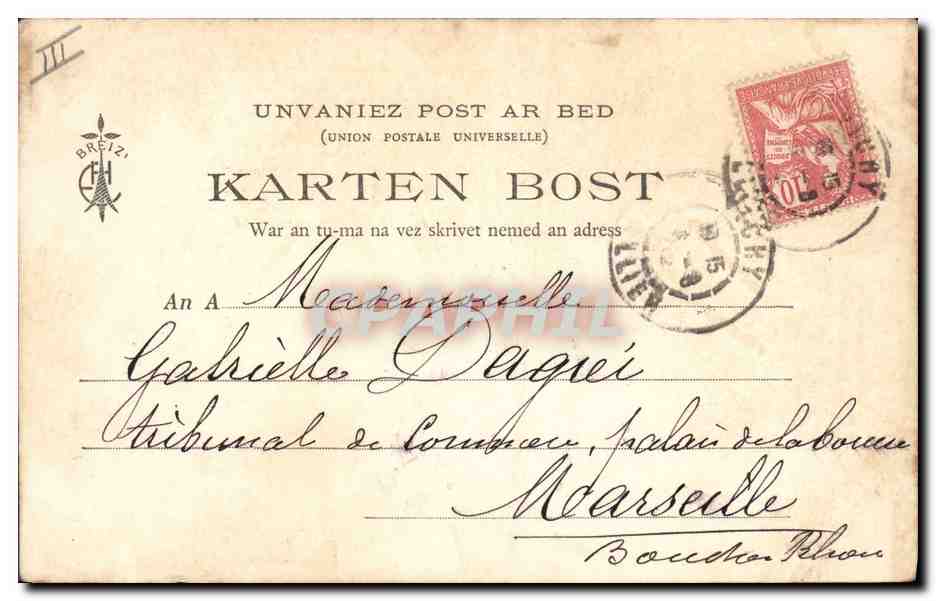 III
UNVANIEZ POST AR BED
(UNION POSTALE UNIVERSELLE)
BREIZ
KARTEN BOST
War an tu-ma na vez skrivet nemed an adress
CPAPHIL
An A Mademoiselle
Gabrielle Dagréi
tribunal de Commerce, palais de la bourse
Marseille
Bouches Rhone
CLICHY
10